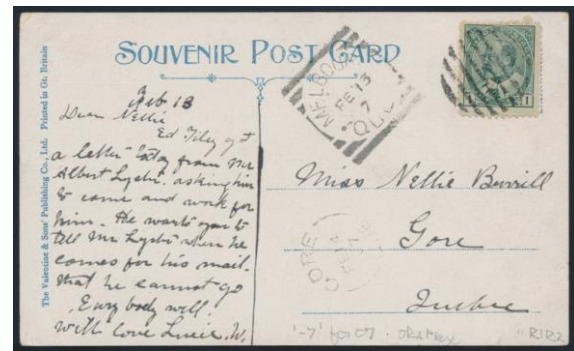 The Valentine & Sons' Publishing Co., Ltd. Printed in Gt. Britain
SOUVENIR POST CARD
MELBOURNE
FE 13
7
QUE
1 1
Feb 13
Dear Nellie
Ed Tiley got
a letter today from Mr
Albert asking him
to come and work for
him. He wants you to
tell Mr when he
comes for his mail.
that he cannot go
Every body will.
With love Lucie. W.
Miss Nellie Burrill
Gore
Quebec
GORE
FE 14
'-7' for 07.
R1R2